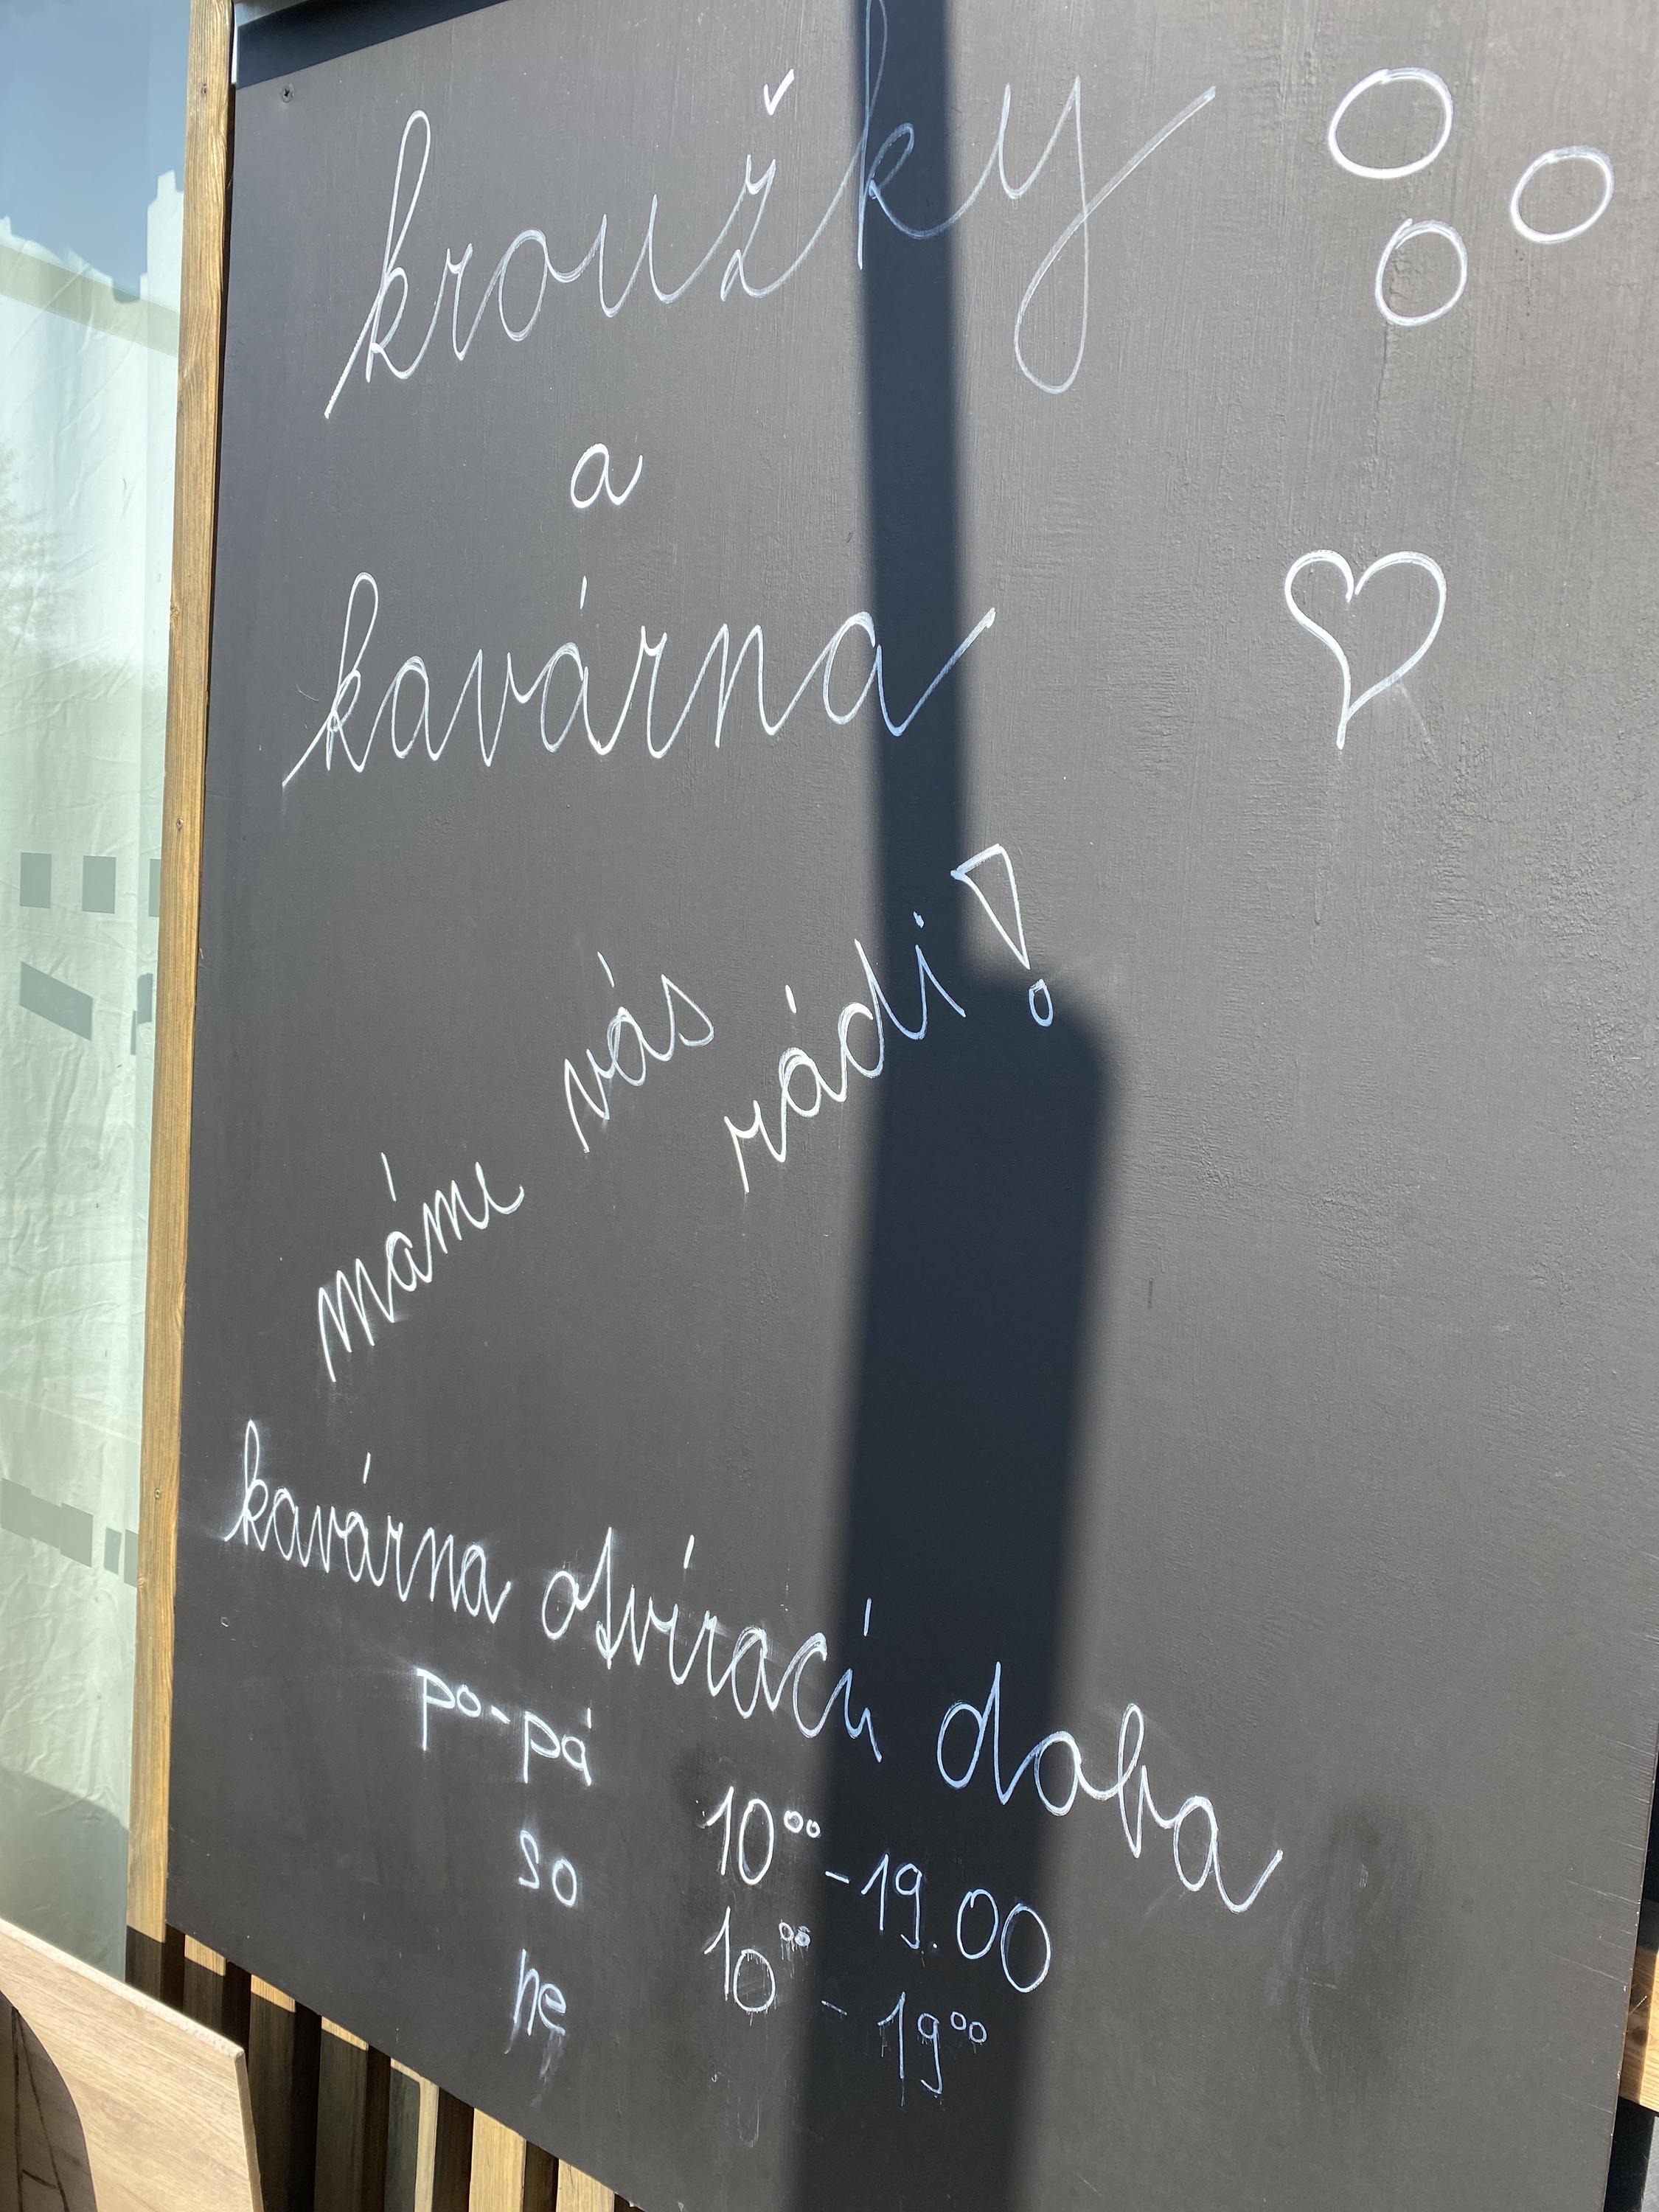 kroužky
a
kavárna
máme vás rádi!
kavárna otvírací doba
po-pá 10⁰⁰ - 19.00
so 10⁰⁰ - 19⁰⁰
ne